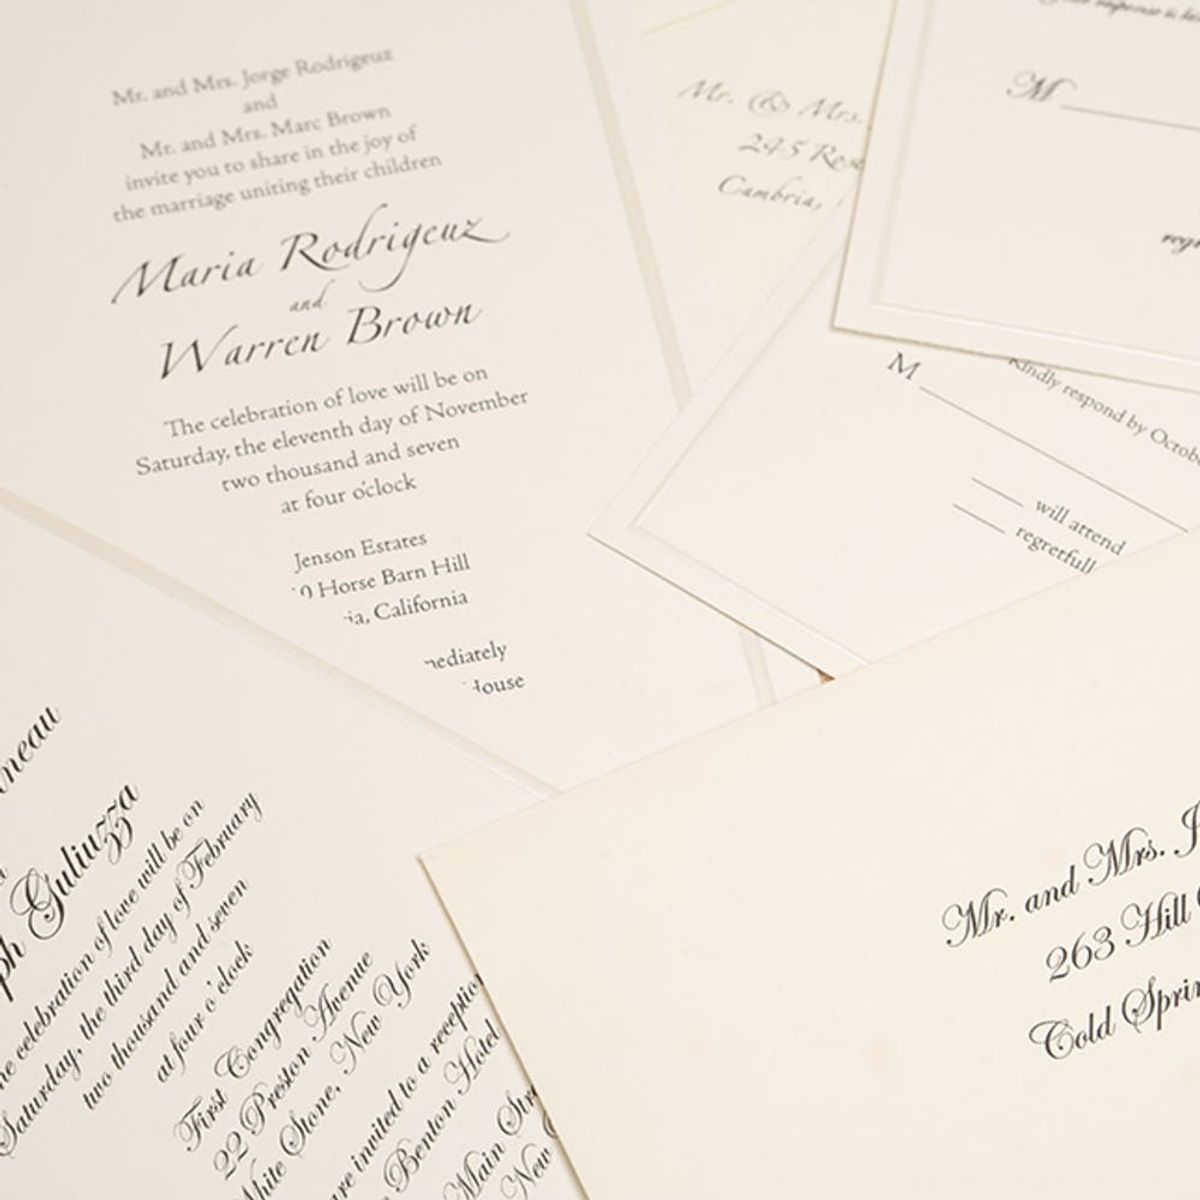 Mr. and Mrs. Jorge Rodrigeuz
and
Mr. and Mrs. Marc Brown
invite you to share in the joy of
the marriage uniting their children
Maria Rodrigeuz
and
Warren Brown
The celebration of love will be on
Saturday, the eleventh day of November
two thousand and seven
at four o'clock
Jenson Estates
0 Horse Barn Hill
ia, California
mediately
House
Mr. & Mrs.
245 Rose
Cambria,
response is
M
regr
M
Kindly respond by Octobe
will attend
regretfull
neau
ph Guliuzza
he celebration of love will be on
Saturday, the third day of February
two thousand and seven
at four o'clock
First Congregation
22 Preston Avenue
White Stone, New York
are invited to a reception
Benton Hotel
Main Stre
New
Mr. and Mrs. J
263 Hill
Cold Sprin